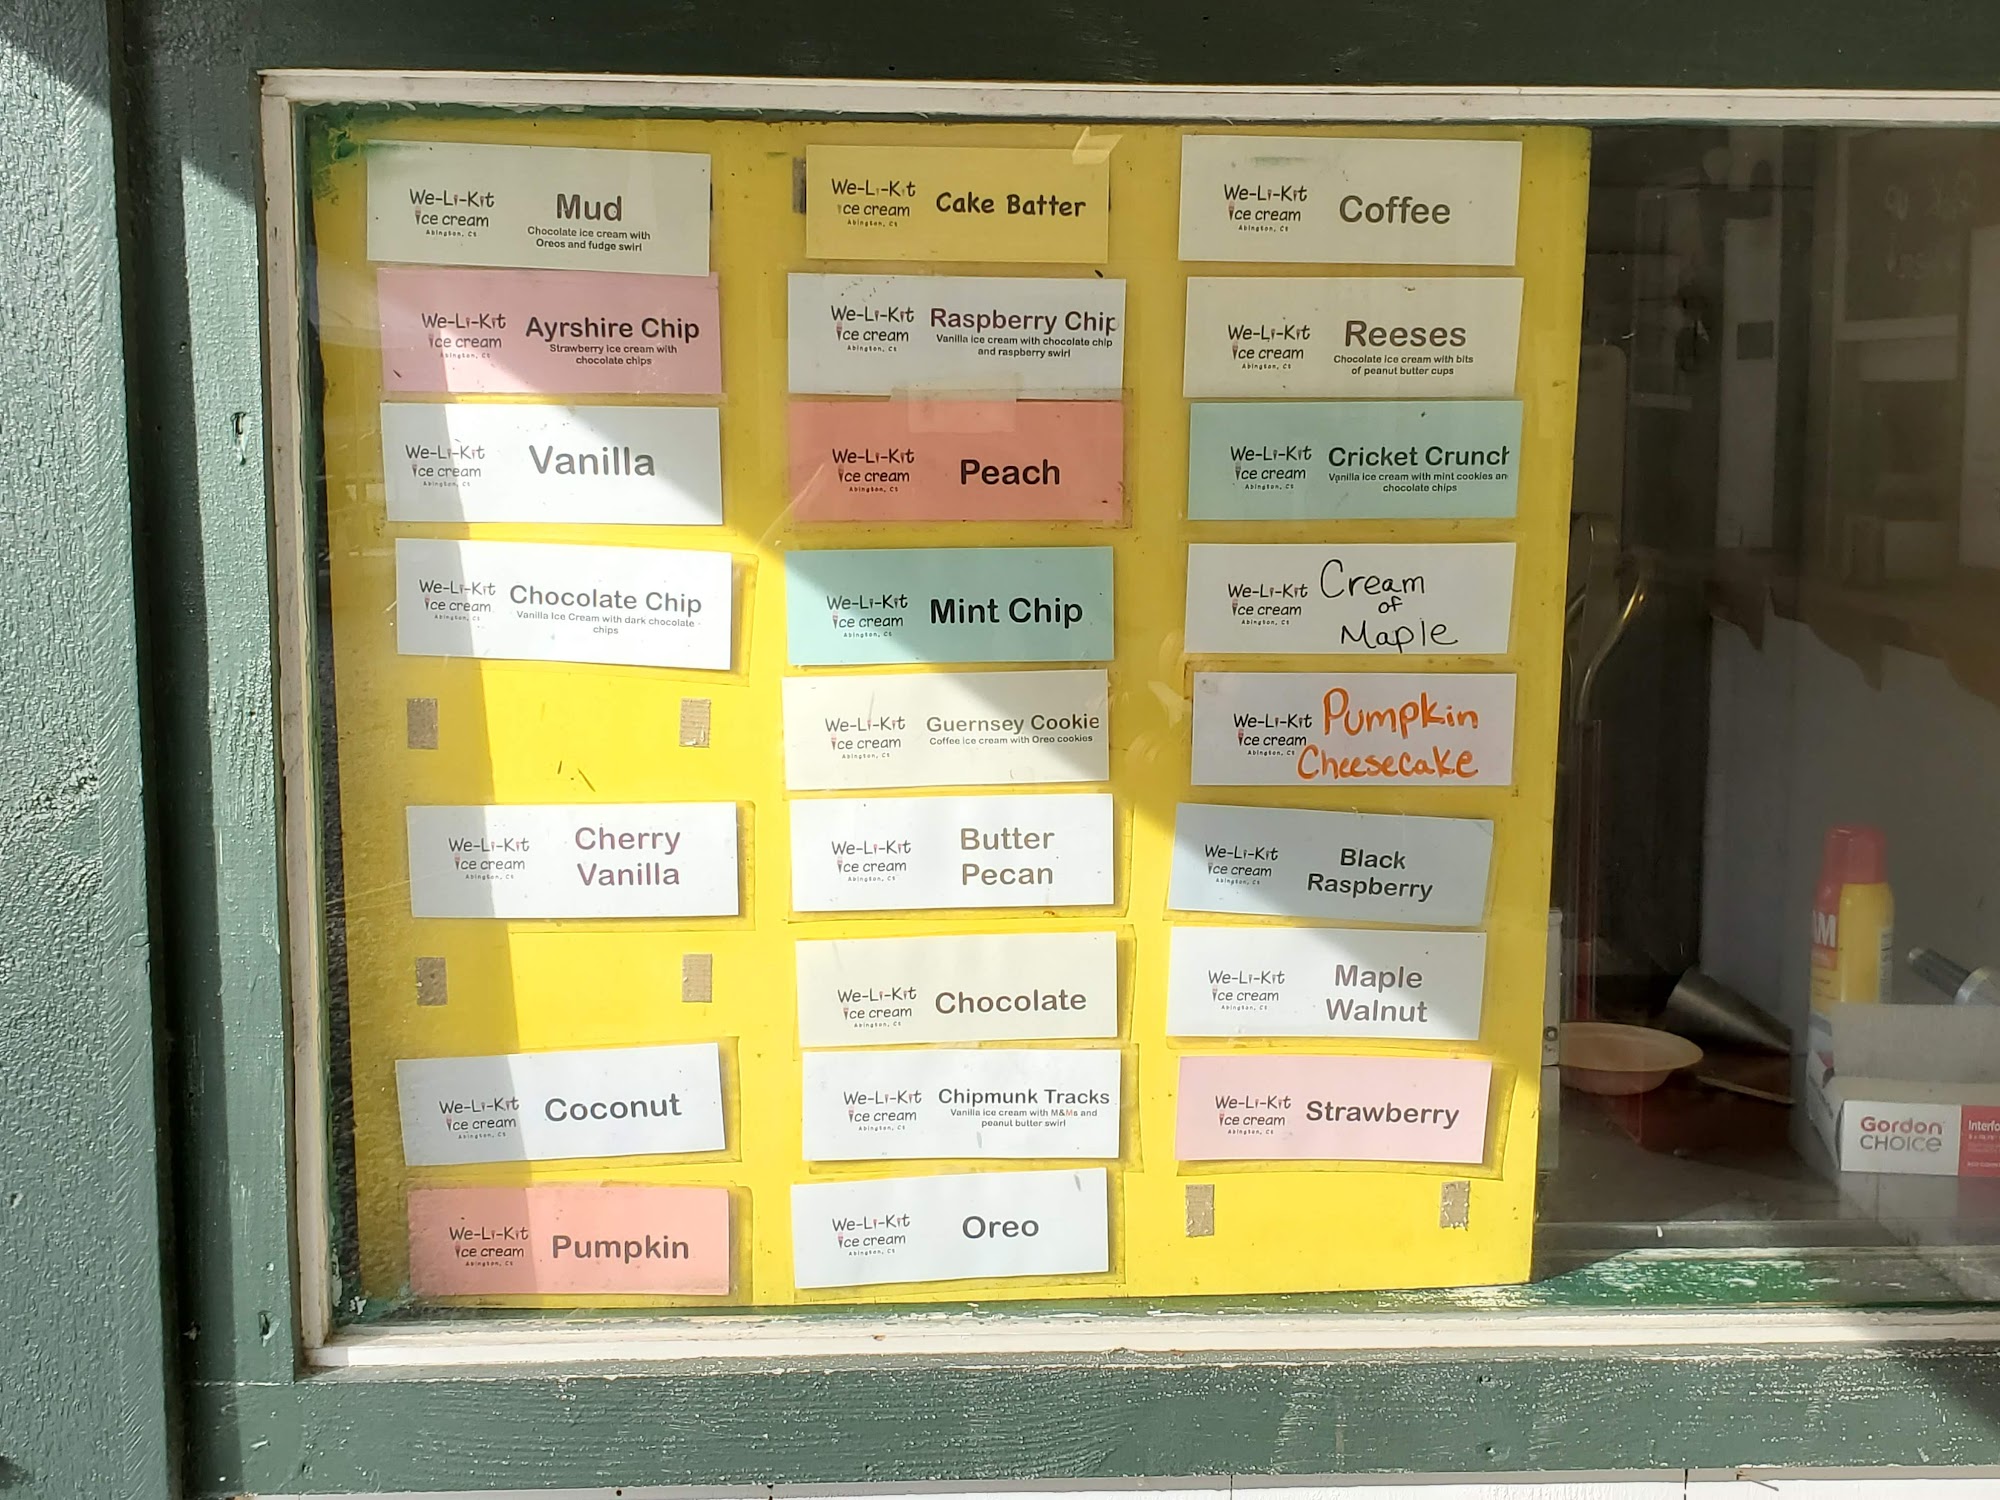 We-Li-Kit
ice cream
Abington, Ct
Mud
Chocolate ice cream with
Oreos and fudge swirl
We-Li-Kit
ice cream
Abington, Ct
Ayrshire Chip
Strawberry ice cream with
chocolate chips
We-Li-Kit
ice cream
Abington, Ct
Vanilla
We-Li-Kit
ice cream
Abington, Ct
Chocolate Chip
Vanilla Ice Cream with dark chocolate
chips
We-Li-Kit
ice cream
Abington, Ct
Cherry
Vanilla
We-Li-Kit
ice cream
Abington, Ct
Coconut
We-Li-Kit
ice cream
Abington, Ct
Pumpkin
We-Li-Kit
ice cream
Abington, Ct
Cake Batter
We-Li-Kit
ice cream
Abington, Ct
Raspberry Chip
Vanilla ice cream with chocolate chip
and raspberry swirl
We-Li-Kit
ice cream
Abington, Ct
Peach
We-Li-Kit
ice cream
Abington, Ct
Mint Chip
We-Li-Kit
ice cream
Abington, Ct
Guernsey Cookie
Coffee ice cream with Oreo cookies
We-Li-Kit
ice cream
Abington, Ct
Butter
Pecan
We-Li-Kit
ice cream
Abington, Ct
Chocolate
We-Li-Kit
ice cream
Abington, Ct
Chipmunk Tracks
Vanilla ice cream with M&Ms and
peanut butter swirl
We-Li-Kit
ice cream
Abington, Ct
Oreo
We-Li-Kit
ice cream
Abington, Ct
Coffee
We-Li-Kit
ice cream
Abington, Ct
Reeses
Chocolate ice cream with bits
of peanut butter cups
We-Li-Kit
ice cream
Abington, Ct
Cricket Crunch
Vanilla ice cream with mint cookies an
chocolate chips
We-Li-Kit
ice cream
Abington, Ct
Cream
of
Maple
We-Li-Kit
ice cream
Abington, Ct
Pumpkin
Cheesecake
We-Li-Kit
ice cream
Abington, Ct
Black
Raspberry
We-Li-Kit
ice cream
Abington, Ct
Maple
Walnut
We-Li-Kit
ice cream
Abington, Ct
Strawberry
AM
Gordon
CHOICE
Interfo